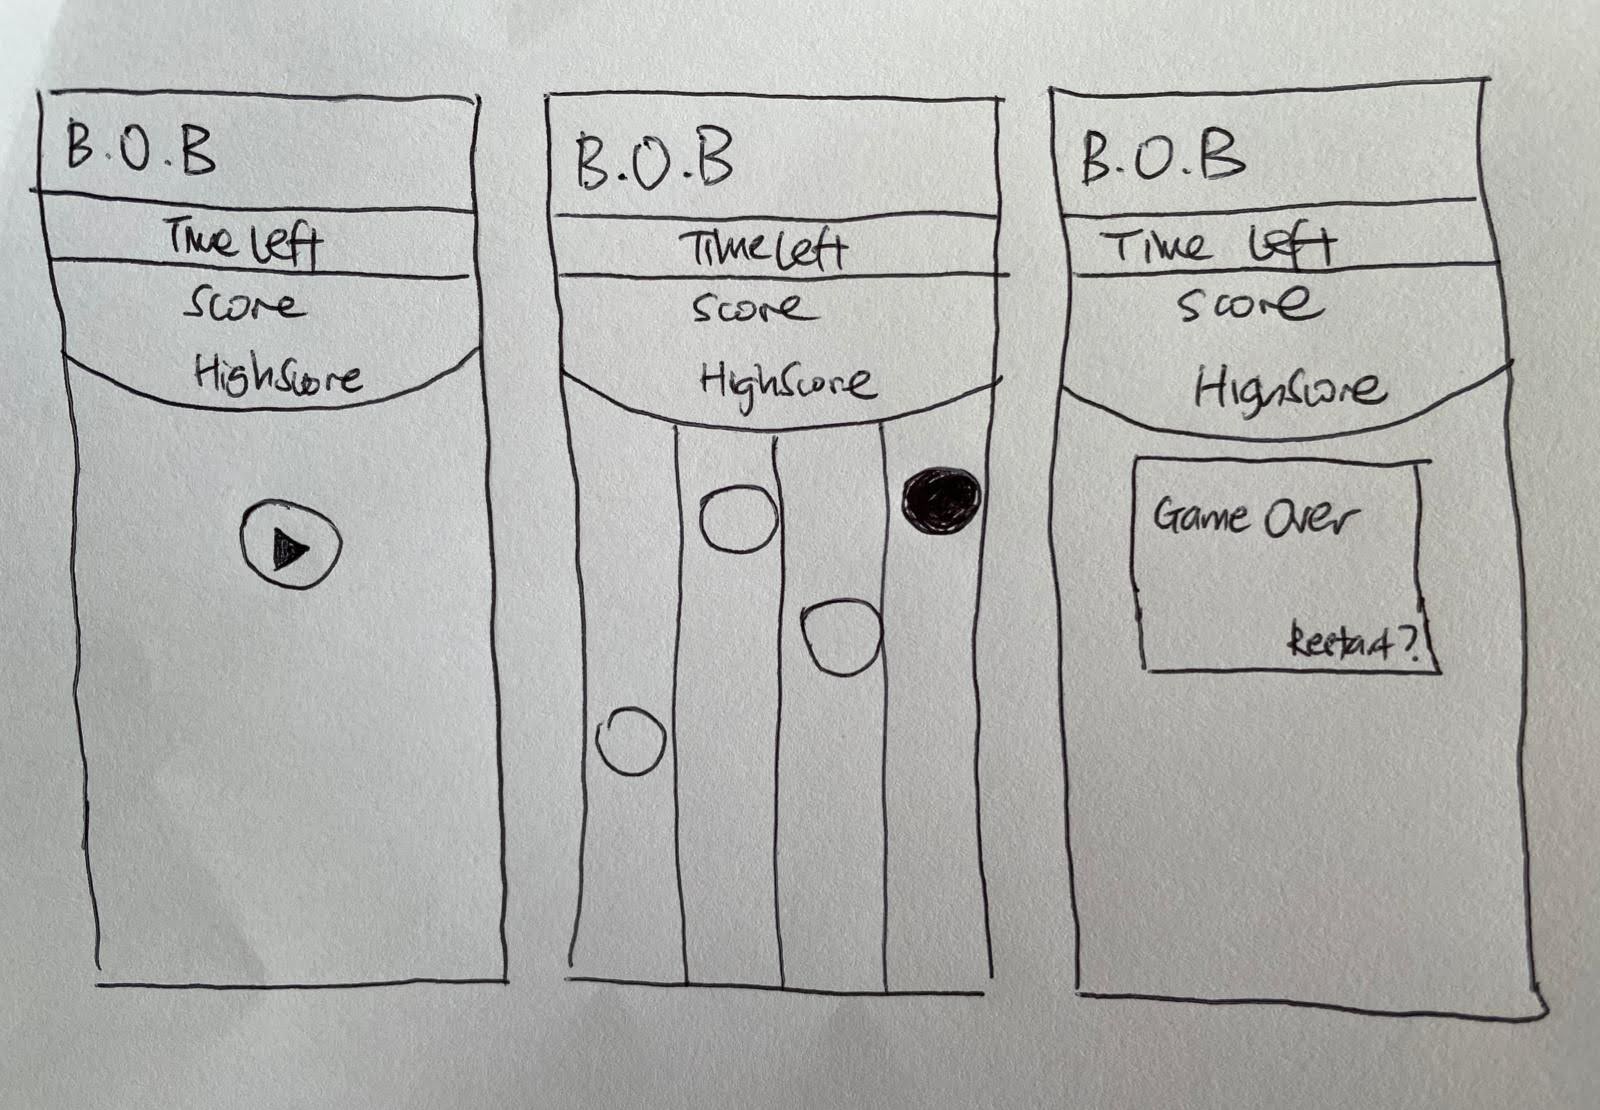 B.O.B
Time Left
Score
HighScore
B.O.B
Time Left
Score
HighScore
B.O.B
Time Left
Score
HighScore
Game Over
Restart?